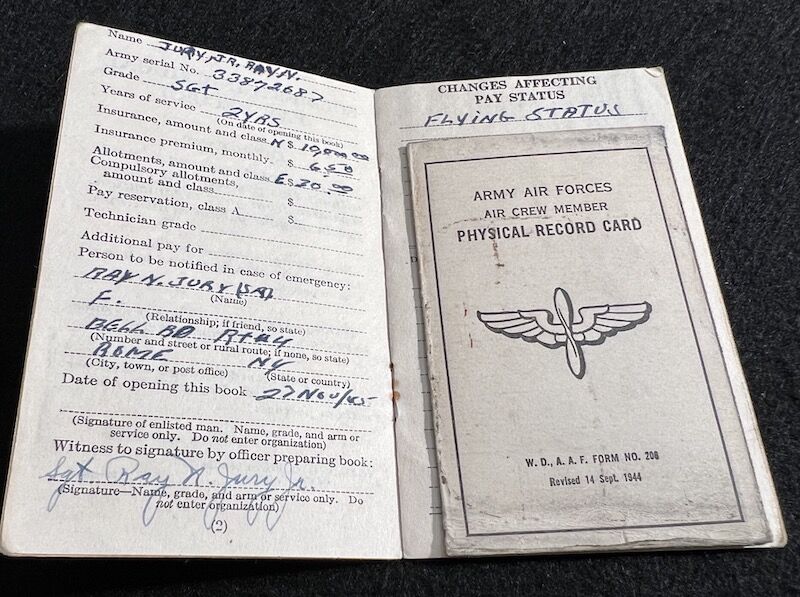 Name JURY, JR. RAY N.
Army serial No. 33872687
Grade SGT
Years of service 2YRS
(On date of opening this book)
Insurance, amount and class N $ 10,000.00
Insurance premium, monthly. $ 6.50
Allotments, amount and class E $ 20.00
Compulsory allotments,
amount and class $
Pay reservation, class A $
Technician grade
Additional pay for
Person to be notified in case of emergency:
RAY N. JURY (SR)
(Name)
F.
(Relationship; if friend, so state)
BELL RD RT#4
(Number and street or rural route; if none, so state)
ROME NY
(City, town, or post office) (State or country)
Date of opening this book 27 NOV/45
(Signature of enlisted man. Name, grade, and arm or
service only. Do not enter organization)
Witness to signature by officer preparing book:
Sgt Ray N. Jury Jr.
(Signature—Name, grade, and arm or service only. Do
not enter organization)
(2)
CHANGES AFFECTING
PAY STATUS
FLYING STATUS
ARMY AIR FORCES
AIR CREW MEMBER
PHYSICAL RECORD CARD
W. D., A. A. F. FORM NO. 206
Revised 14 Sept. 1944